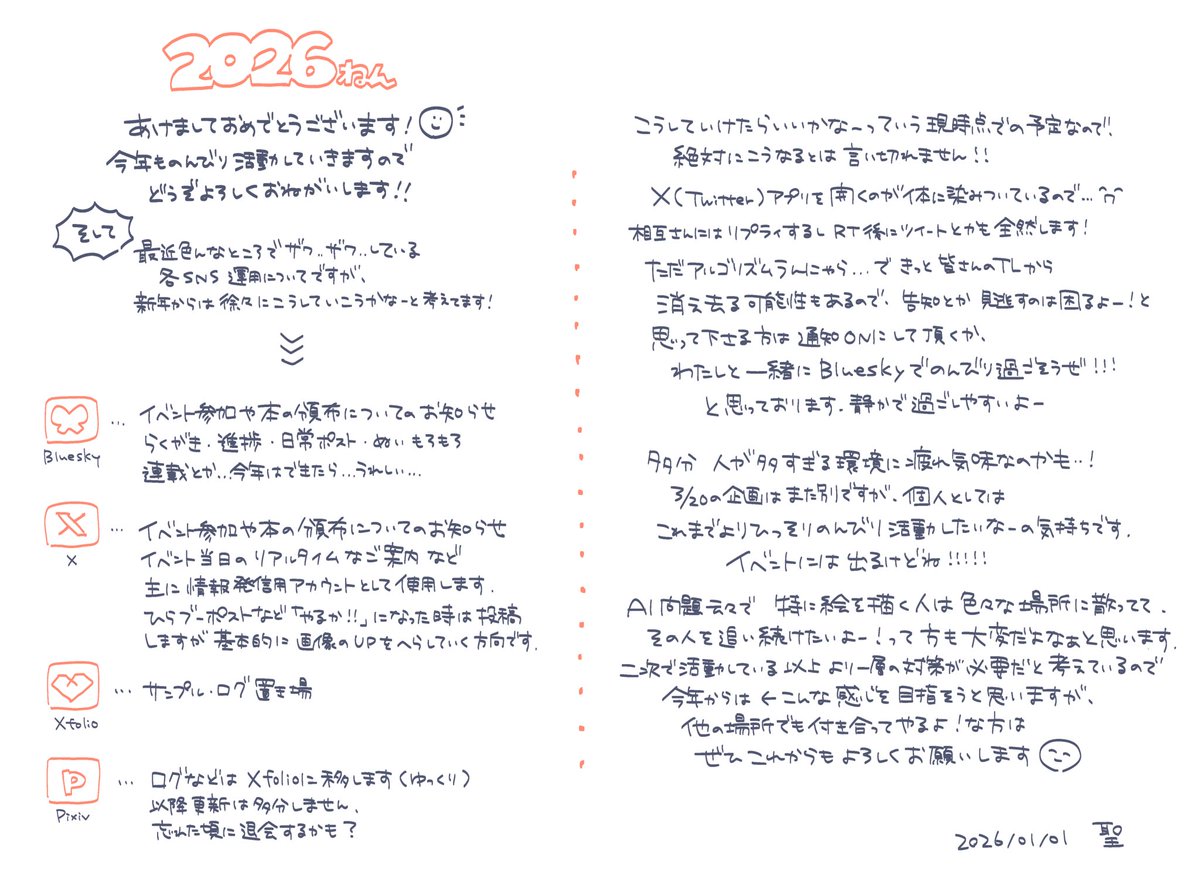 2026ねん
あけましておめでとうございます!
今年ものんびり活動していきますので
どうぞよろしくおねがいします!!
そして
最近色んなところでザワ..ザワ..している
各SNS運用についてですが、
新年からは徐々にこうしていこうかなーと考えてます!
Bluesky
…イベント参加や本の頒布についてのお知らせ
らくがき・進捗・日常ポスト・ぬいもろもろ
連載とか…今年はできたら…うれしい…
X
…イベント参加や本の頒布についてのお知らせ
イベント当日のリアルタイムなご案内など
主に情報発信用アカウントとして使用します.
ひらブーポストなど「やるか!!」になった時は投稿
しますが基本的に画像のUPをへらしていく方向です.
Xfolio
…サンプル・ログ置き場
Pixiv
…ログなどはXfolioに移します(ゆっくり)
以降更新は多分しません.
忘れた頃に退会するかも?
こうしていけたらいいかなーっていう現時点での予定なので、
絶対にこうなるとは言い切れません!!
X(Twitter)アプリを開くのが体に染みついているので…
相互さんにはリプライするしRT後にツイートとかも全然します!
ただアルゴリズムうんにゃら…できっと皆さんのTLから
消え去る可能性もあるので、告知とか見逃すのは困るよー!と
思って下さる方は通知ONにして頂くか、
わたしと一緒にBlueskyでのんびり過ごそうぜ!!!
と思っております.静かで過ごしやすいよー
多分 人が多すぎる環境に疲れ気味なのかも..!
3/20の企画はまた別ですが、個人としては
これまでよりひっそりのんびり活動したいなーの気持ちです.
イベントには出るけどね!!!!!
AI問題云々で 特に絵を描く人は色々な場所に散ってて、
その人を追い続けたいよー!って方も大変だよなぁと思います.
二次で活動している以上より一層の対策が必要だと考えているので
今年からは←こんな感じを目指そうと思いますが、
他の場所でも付き合ってやるよ!な方は
ぜひこれからもよろしくお願いします
2026/01/01 聖